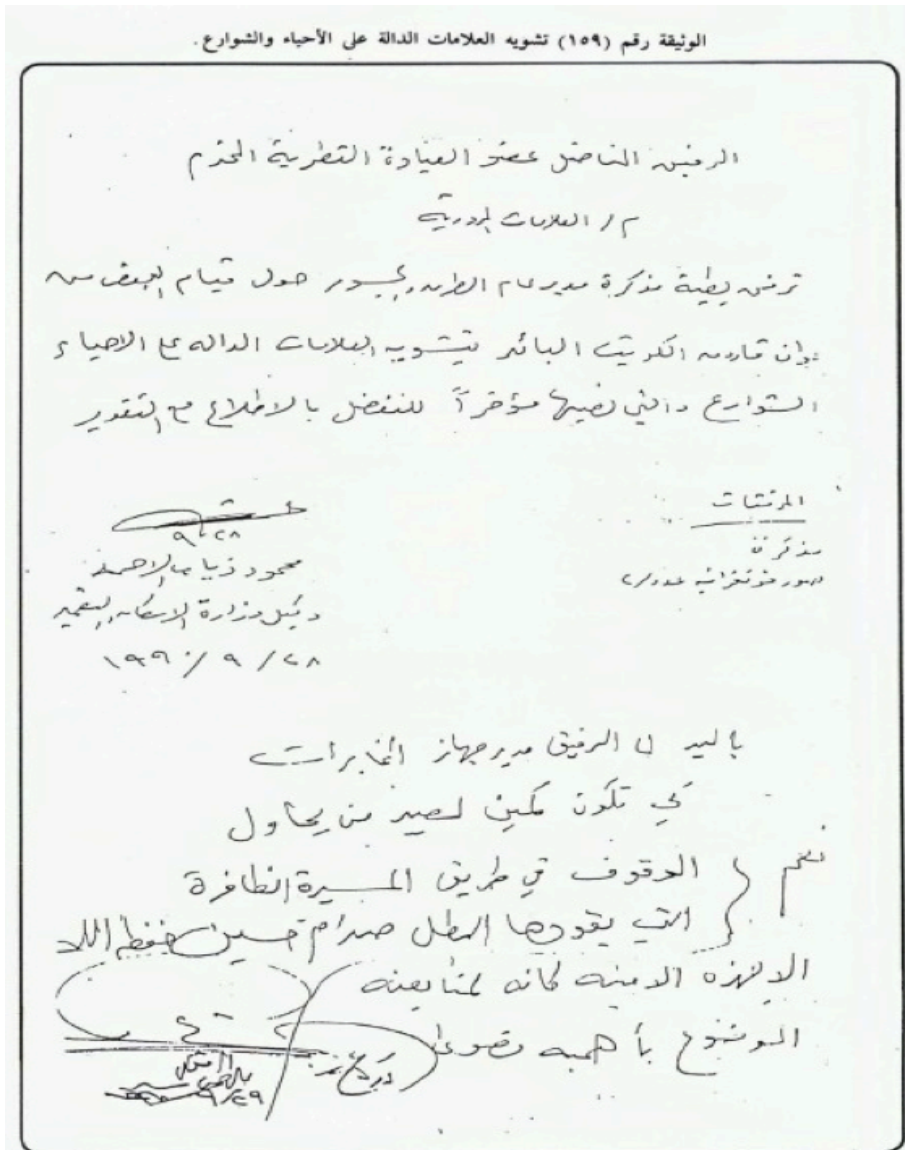 الوثيقة رقم (١٥٩) تشويه العلامات الدالة على الأحياء والشوارع.
الرفيق المناضل عضو القيادة القطرية المحترم
م / العلامات المرورية
نرفق بطية مذكرة مدير عام الطرق والجسور حول قيام البعض من
قارون الكويت البائد بتشويه العلامات الداله على الاحياء
الشوارع والتي نصبها مؤخراً للتفضل بالاطلاع مع التقدير
المرفقات
مذكرة
صور فوتغرافيه عدد/٢
٩/٢٨
محمود ذياب الاحمد
وكيل وزارة الاسكان والتعمير
٢٨ / ٩ / ١٩٩٠
باليد الرفيق مدير جهاز المخابرات
كي تكون كمين لصيد من يحاول
نعم
الوقوف في طريق المسيرة الظافرة
التي يقودها البطل صدام حسين حفظه الله
الاجهزة الامنيه كافه لمتابعته
الموضوع بأهميه
٩/٢٩